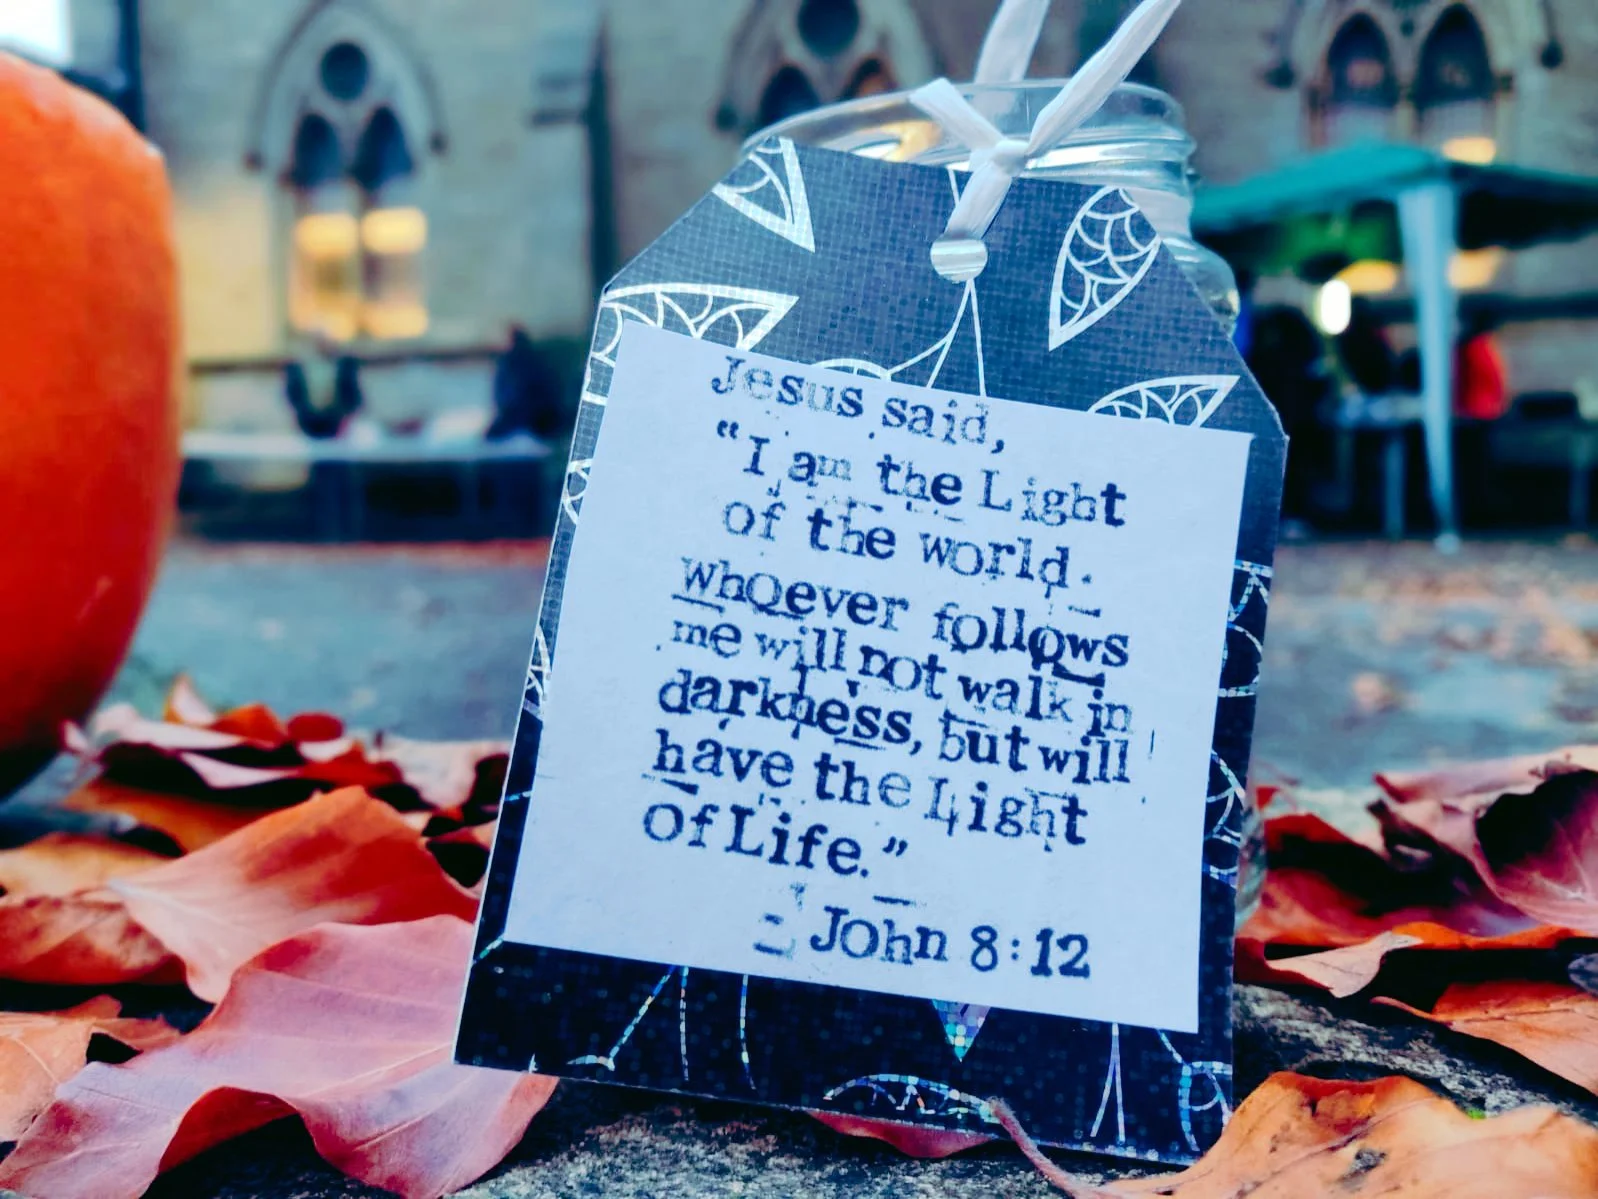 Jesus said,
"I am the Light
of the world.
Whoever follows
me will not walk in
darkness, but will
have the Light
Of Life."
- John 8:12